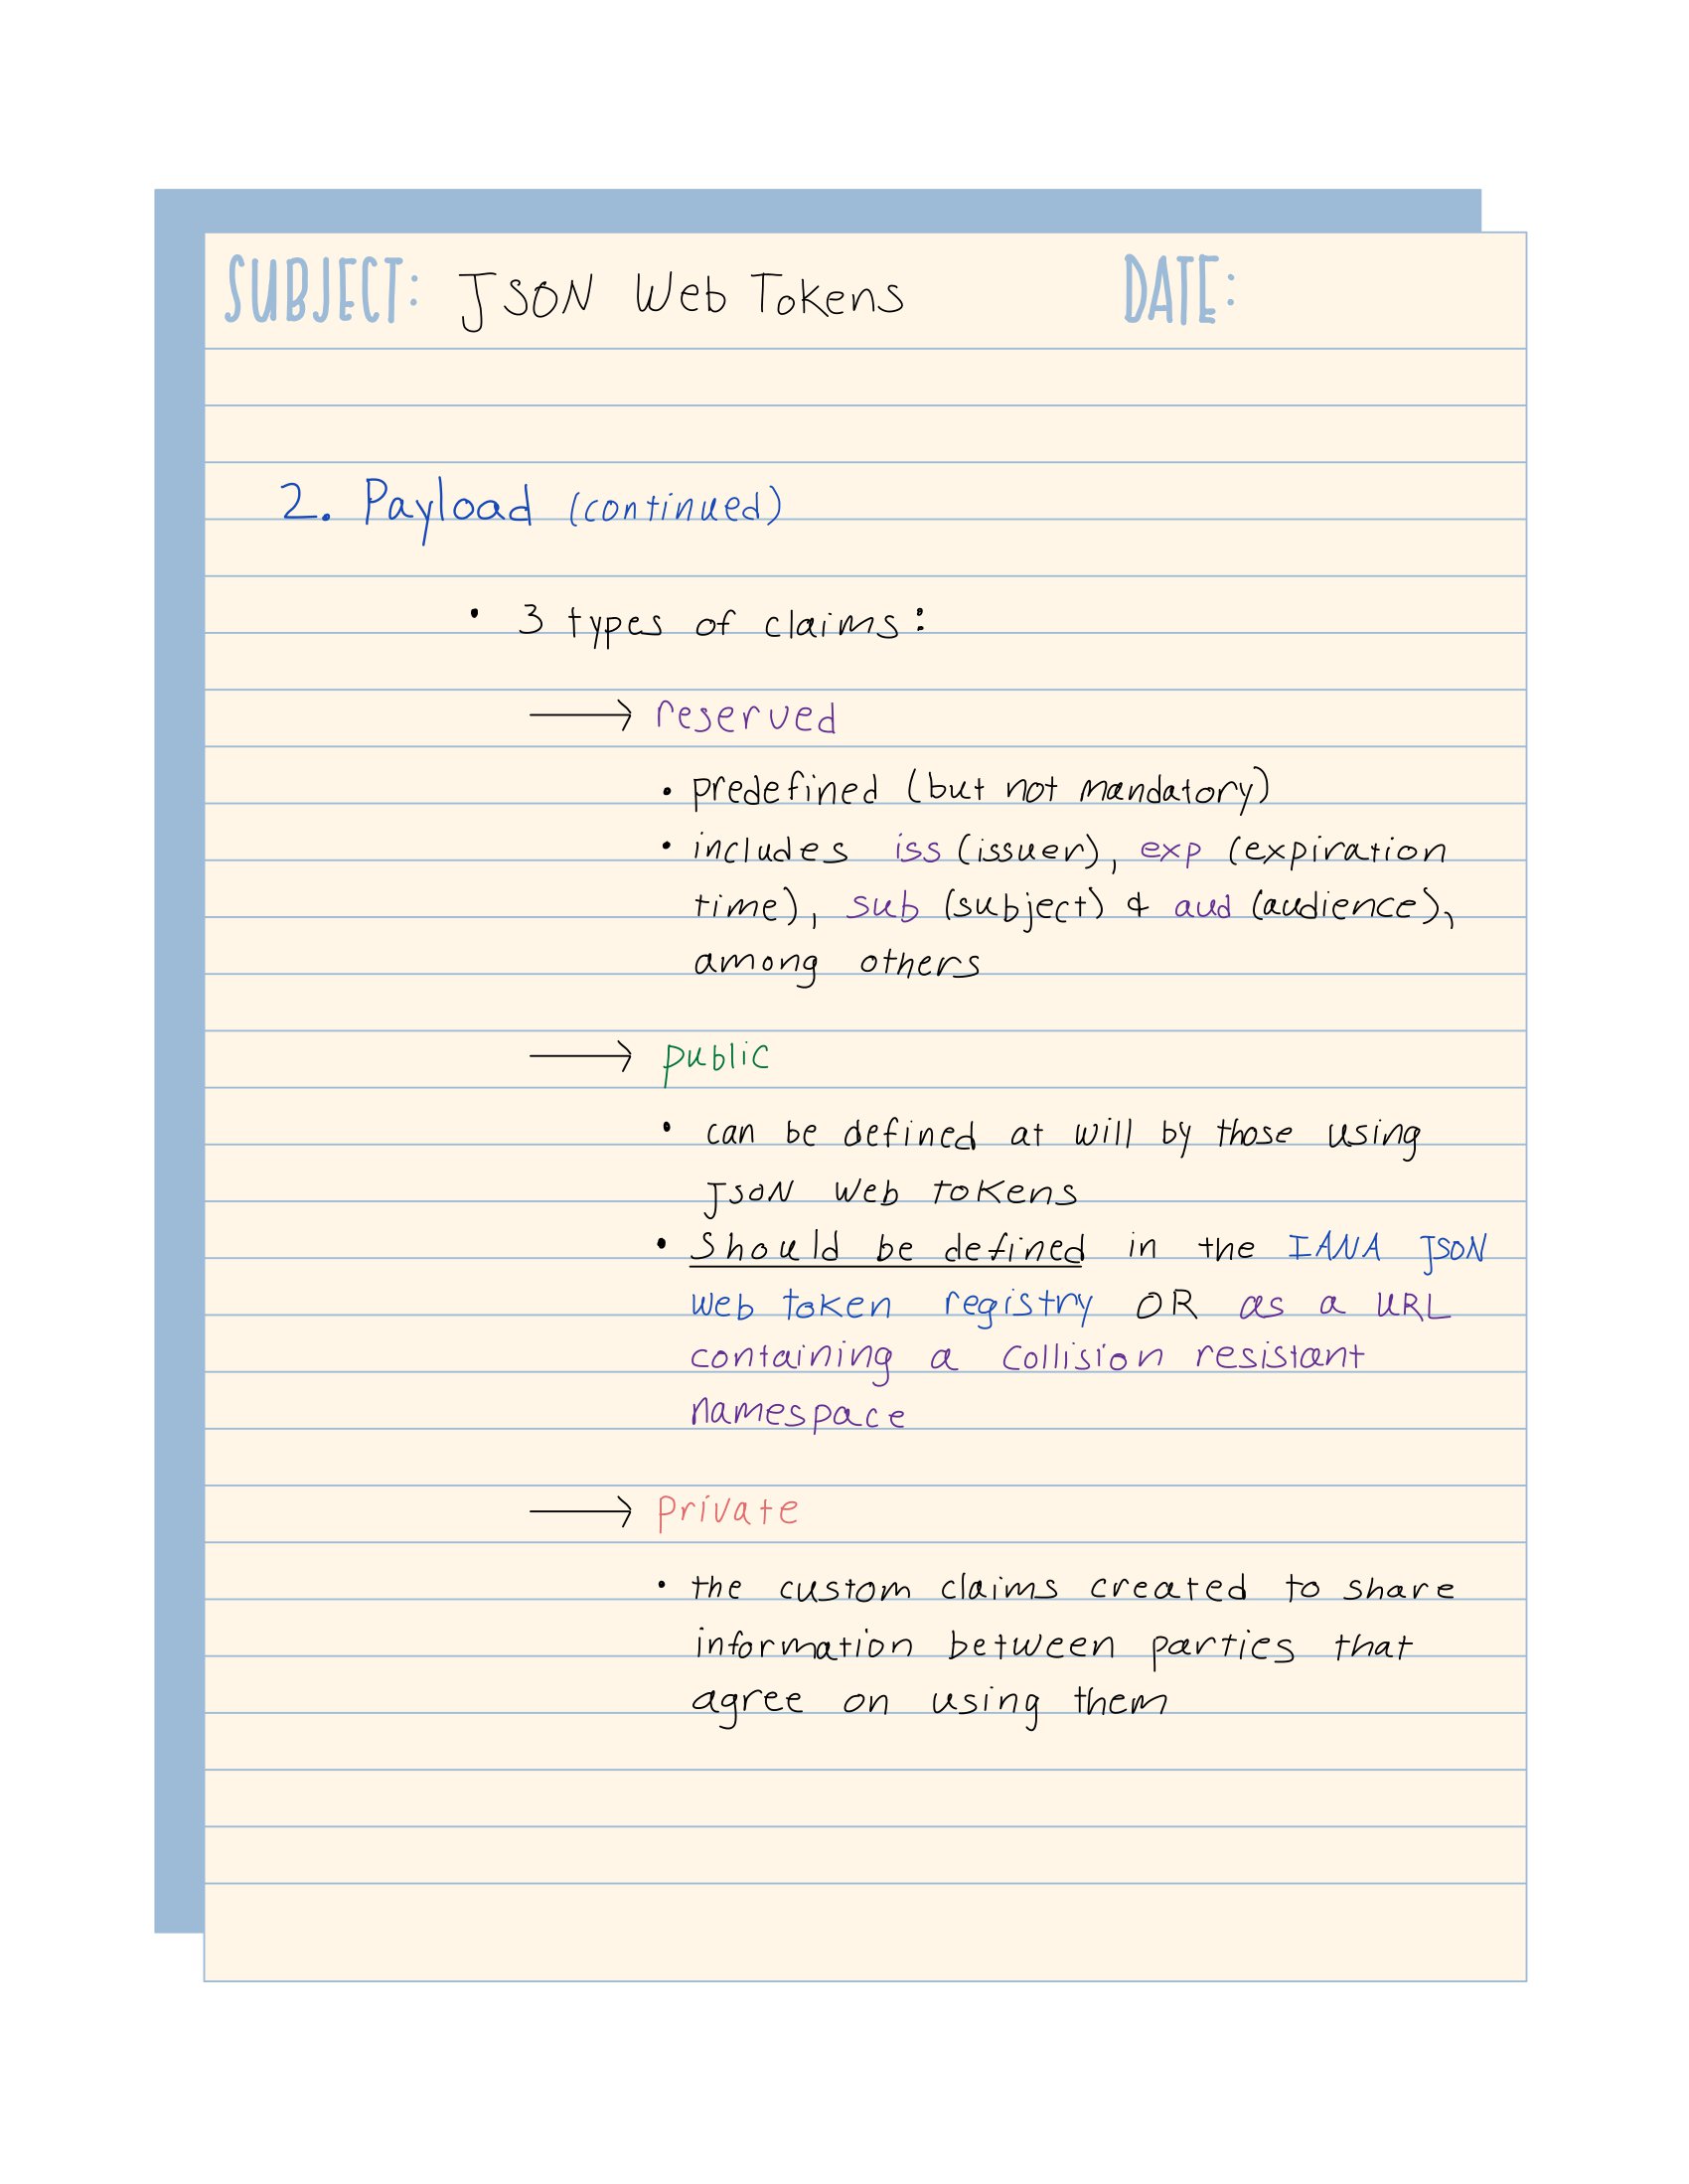 SUBJECT: JSON Web Tokens DATE:
2. Payload (continued)
• 3 types of claims:
→ reserved
• predefined (but not mandatory)
• includes iss (issuer), exp (expiration
time), sub (subject) & aud (audience),
among others
→ public
• can be defined at will by those using
JSON Web Tokens
• Should be defined in the IANA JSON
Web token registry OR as a URL
containing a collision resistant
namespace
→ private
• the custom claims created to share
information between parties that
agree on using them